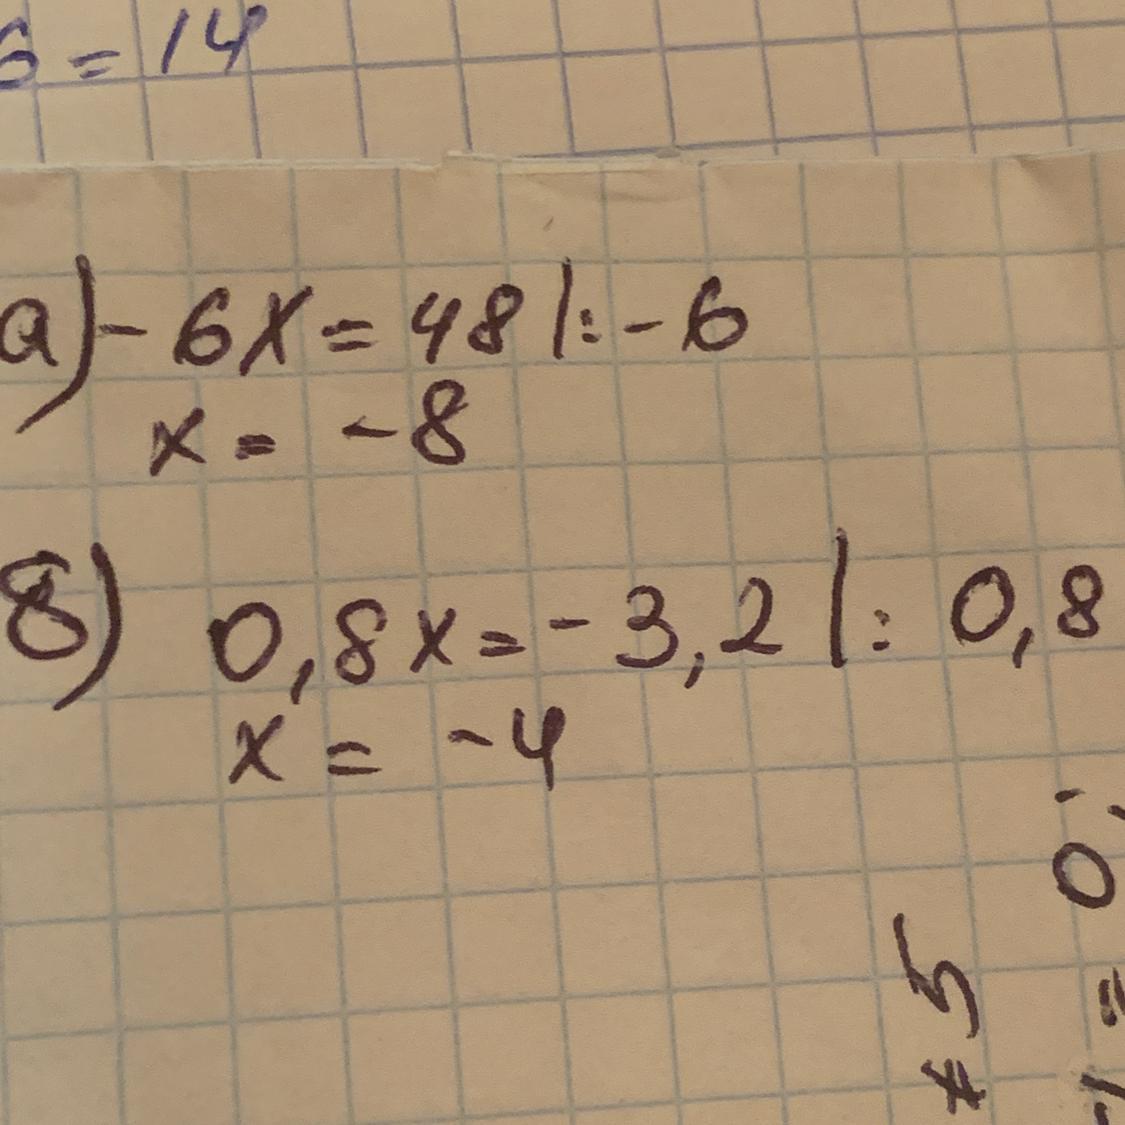 6 = 14
а) - 6x = 48 |: - 6
x = - 8
в) 0,8x = - 3,2 |: 0,8
x = - 4